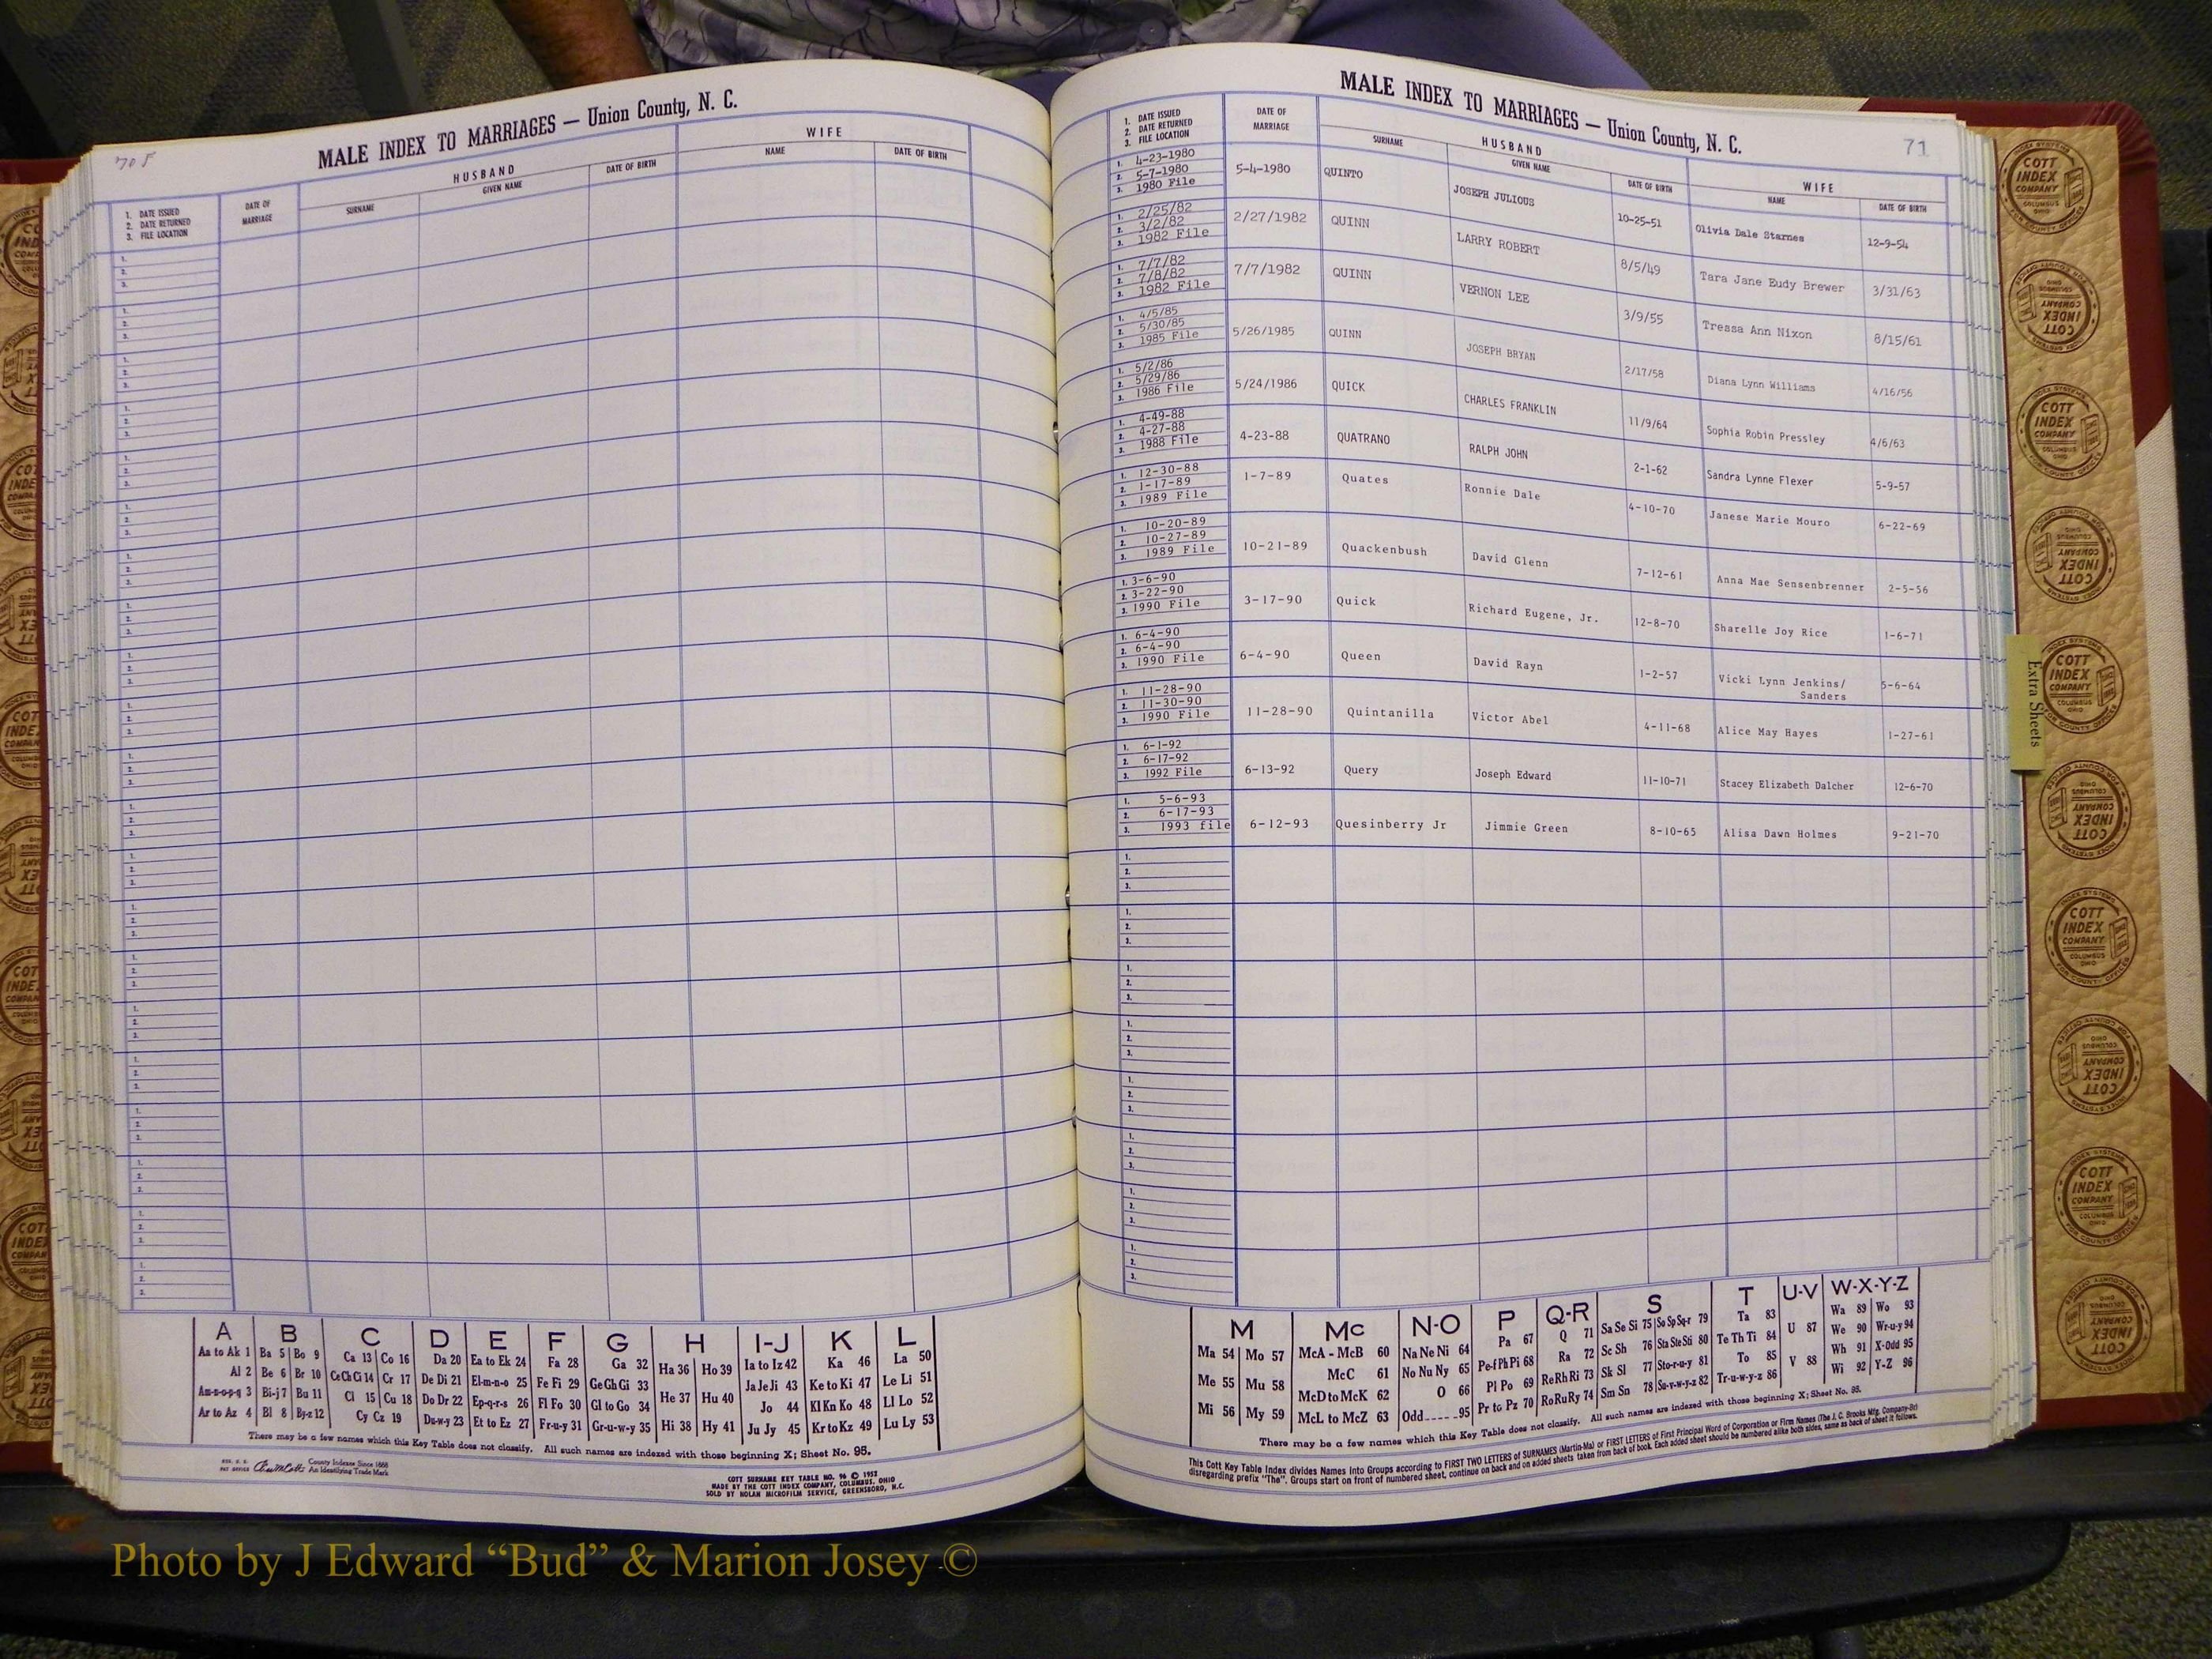 MALE INDEX TO MARRIAGES — Union County, N. C.
HUSBAND
WIFE
1. DATE ISSUED
2. DATE RETURNED
3. FILE LOCATION
DATE OF MARRIAGE
SURNAME
GIVEN NAME
DATE OF BIRTH
NAME
DATE OF BIRTH
A B C D E F G H I-J K L
Aa to Ak 1 Ba 5 Bo 9 Ca 13 Co 16 Da 20 Ea to Ek 24 Fa 28 Ga 32 Ha 36 Ho 39 Ia to Iz 42 Ka 46 La 50
Al 2 Be 6 Br 10 Ce Ch Ci 14 Cr 17 De Di 21 El-m-n-o 25 Fe Fi 29 Ge Gh Gi 33 He 37 Hu 40 Ja Je Ji 43 Ke to Ki 47 Le Li 51
Am-n-o-p-q 3 Bi-j 7 Bu 11 Cl 15 Cu 18 Do Dr 22 Ep-q-r-s 26 Fl Fo 30 Gl to Go 34 Hi 38 Hy 41 Jo 44 Kl Kn Ko 48 Ll Lo 52
Ar to Az 4 Bl 8 By-z 12 Cy Cz 19 Du-w-y 23 Et to Ez 27 Fr-u-y 31 Gr-u-w-y 35 Ju Jy 45 Kr to Kz 49 Lu Ly 53
There may be a few names which this Key Table does not classify. All such names are indexed with those beginning X; Sheet No. 95.
County Indexes Since 1888
An Identifying Trade Mark
COTT SURNAME KEY TABLE NO. 96 © 1952
MADE BY THE COTT INDEX COMPANY, COLUMBUS, OHIO
SOLD BY NOLAN MICROFILM SERVICE, GREENSBORO, N.C.
MALE INDEX TO MARRIAGES — Union County, N. C.
71
1. DATE ISSUED
2. DATE RETURNED
3. FILE LOCATION
DATE OF MARRIAGE
HUSBAND
SURNAME
GIVEN NAME
DATE OF BIRTH
WIFE
NAME
DATE OF BIRTH
1. 4-23-1980
2. 5-7-1980
3. 1980 File
5-4-1980 QUINTO JOSEPH JULIOUS 10-25-51 Olivia Dale Starnes 12-9-54
1. 2/25/82
2. 3/2/82
3. 1982 File
2/27/1982 QUINN LARRY ROBERT 8/5/49 Tara Jane Eudy Brewer 3/31/63
1. 7/7/82
2. 7/8/82
3. 1982 File
7/7/1982 QUINN VERNON LEE 3/9/55 Tressa Ann Nixon 8/15/61
1. 4/5/85
2. 5/30/85
3. 1985 File
5/26/1985 QUINN JOSEPH BRYAN 2/17/58 Diana Lynn Williams 4/16/56
1. 5/2/86
2. 5/29/86
3. 1986 File
5/24/1986 QUICK CHARLES FRANKLIN 11/9/64 Sophia Robin Pressley 4/6/63
1. 4-49-88
2. 4-27-88
3. 1988 File
4-23-88 QUATRANO RALPH JOHN 2-1-62 Sandra Lynne Flexer 5-9-57
1. 12-30-88
2. 1-17-89
3. 1989 File
1-7-89 Quates Ronnie Dale 4-10-70 Janese Marie Mouro 6-22-69
1. 10-20-89
2. 10-27-89
3. 1989 File
10-21-89 Quackenbush David Glenn 7-12-61 Anna Mae Sensenbrenner 2-5-56
1. 3-6-90
2. 3-22-90
3. 1990 File
3-17-90 Quick Richard Eugene, Jr. 12-8-70 Sharelle Joy Rice 1-6-71
1. 6-4-90
2. 6-4-90
3. 1990 File
6-4-90 Queen David Rayn 1-2-57 Vicki Lynn Jenkins/ 5-6-64
Sanders
1. 11-28-90
2. 11-30-90
3. 1990 File
11-28-90 Quintanilla Victor Abel 4-11-68 Alice May Hayes 1-27-61
1. 6-1-92
2. 6-17-92
3. 1992 File
6-13-92 Query Joseph Edward 11-10-71 Stacey Elizabeth Dalcher 12-6-70
1. 5-6-93
2. 6-17-93
3. 1993 file
6-12-93 Quesinberry Jr Jimmie Green 8-10-65 Alisa Dawn Holmes 9-21-70
M Mc N-O P Q-R S T U-V W-X-Y-Z
Ma 54 Mo 57 McA - McB 60 Na Ne Ni 64 Pa 67 Q 71 Sa Se Si 75 So Sp Sq-r 79 Ta 83 U 87 Wa 89 Wo 93
Me 55 Mu 58 McC 61 No Nu Ny 65 Pe-f Ph Pi 68 Ra 72 Sc Sh 76 Sta Ste Sti 80 Te Th Ti 84 V 88 We 90 Wr-u-y 94
Mi 56 My 59 McD to McK 62 O 66 Pl Po 69 Re Rh Ri 73 Sk Sl 77 Sto-r-u-y 81 To 85 Wh 91 X-Odd 95
McL to McZ 63 Odd 95 Pr to Pz 70 Ro Ru Ry 74 Sm Sn 78 Su-v-w-y-z 82 Tr-u-w-y-z 86 Wi 92 Y-Z 96
There may be a few names which this Key Table does not classify. All such names are indexed with those beginning X; Sheet No. 95.
This Cott Key Table Index divides Names Into Groups according to FIRST TWO LETTERS of SURNAMES (Martin-Ma) or FIRST LETTERS of First Principal Word of Corporation or Firm Names (The J. C. Brooks Mfg. Company-Br)
disregarding prefix "The". Groups start on front of numbered sheet, continue on back and on added sheets taken from back of book. Each added sheet should be numbered alike both sides, same as back of sheet it follows.
Extra Sheets
COTT INDEX COMPANY
COLUMBUS OHIO
Photo by J Edward “Bud” & Marion Josey ©